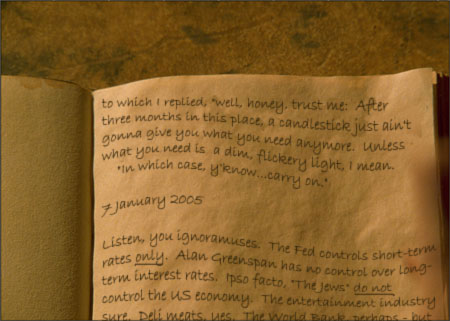 to which I replied, "well, honey. trust me: After
three months in this place, a candlestick just ain't
gonna give you what you need anymore. Unless
what you need is a dim, flickery light, I mean.
"In which case, y'know...carry on."
7 January 2005
Listen, you ignoramuses. The Fed controls short-term
rates only. Alan Greenspan has no control over long-
term interest rates. Ipso facto, "The Jews" do not
control the US economy. The entertainment industry
sure. Deli meats, yes. The World Bank, perhaps - but